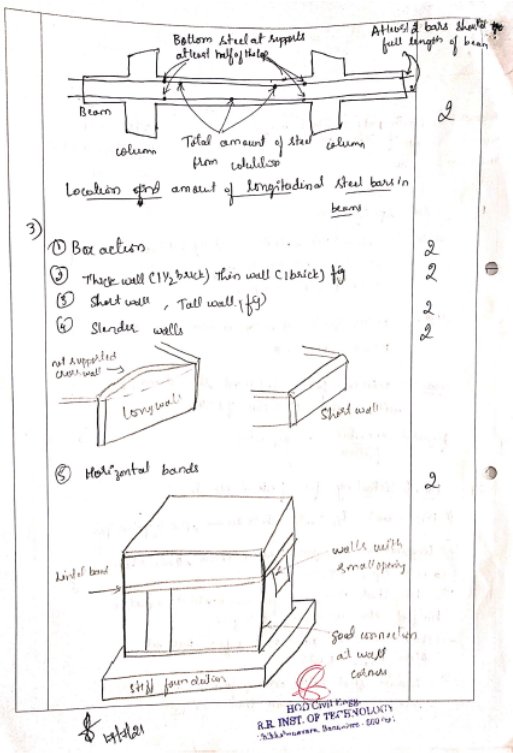 Bottom steel at supports
at least half of the top
At least 2 bars should go
full length of beam
Beam
2
column
Total amount of steel
from calculation
column
Location and amount of longitadinal steel bars in
beams
3)
① Box action 2
② Thick wall (1½ brick) Thin wall (1 brick) fig 2
③ Short wall, Tall wall (fig) 2
④ Slender walls 2
not supported
cross wall
Long wall
Short wall
⑤ Horizontal bands 2
Lintel band
walls with
small opening
good connection
at wall
corners
stiff foundation
HOD Civil Engg.
R.R. INST. OF TECHNOLOGY